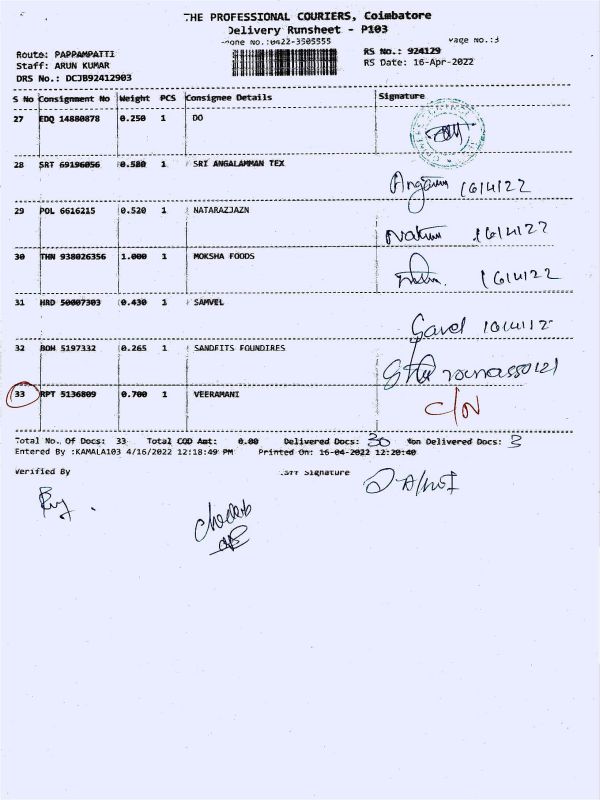 THE PROFESSIONAL COURIERS, Coimbatore
Delivery Runsheet - P103
Phone No.:0422-3505555 Page No.:3
Route: PAPPAMPATTI RS No.: 924129
Staff: ARUN KUMAR RS Date: 16-Apr-2022
DRS No.: DCJB92412903
S No Consignment No Weight PCS Consignee Details Signature
27 EDQ 14880878 0.250 1 DO
28 SRT 69196056 0.580 1 SRI ANGALAMMAN TEX
16/4/22
29 POL 6616215 0.520 1 NATARAZJAZN
16/4/22
30 THN 938026356 1.000 1 MOKSHA FOODS
16/4/22
31 HRD 50007303 0.430 1 SAMVEL
32 BOM 5197332 0.265 1 SANDFITS FOUNDIRES
33 RPT 5136809 0.700 1 VEERAMANI
C/N
Total No. Of Docs: 33 Total COD Amt: 0.00 Delivered Docs: 30 Non Delivered Docs: 3
Entered By :KAMALA103 4/16/2022 12:18:49 PM Printed On: 16-04-2022 12:20:40
Verified By Signature